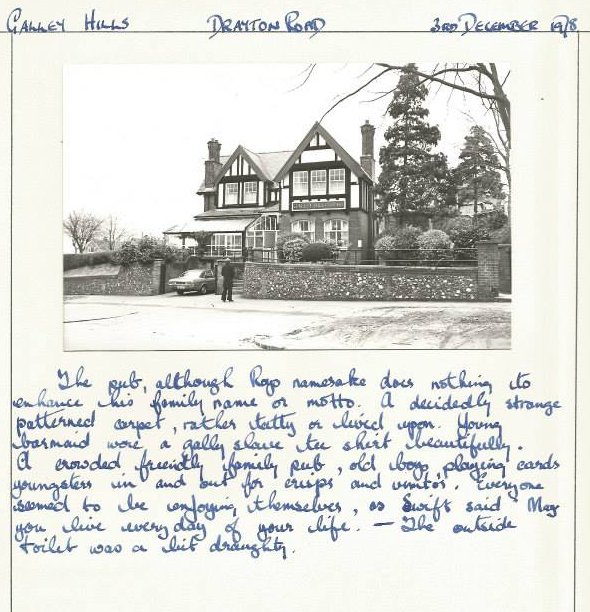 GALLEY HILLS DRAYTON ROAD 3RD DECEMBER 1978
The pub, although Rogs namesake does nothing to
enhance his family name or motto. A decidedly strange
patterned carpet, rather tatty or lived upon. Young
barmaid wore a gally slave tee shirt beautifully.
A crowded, friendly family pub, old boys, playing cards
youngsters in and out for crisps and vimtos. Everyone
seemed to be enjoying themselves, as Swift said May
you live every day of your life. — The outside
toilet was a bit draughty.